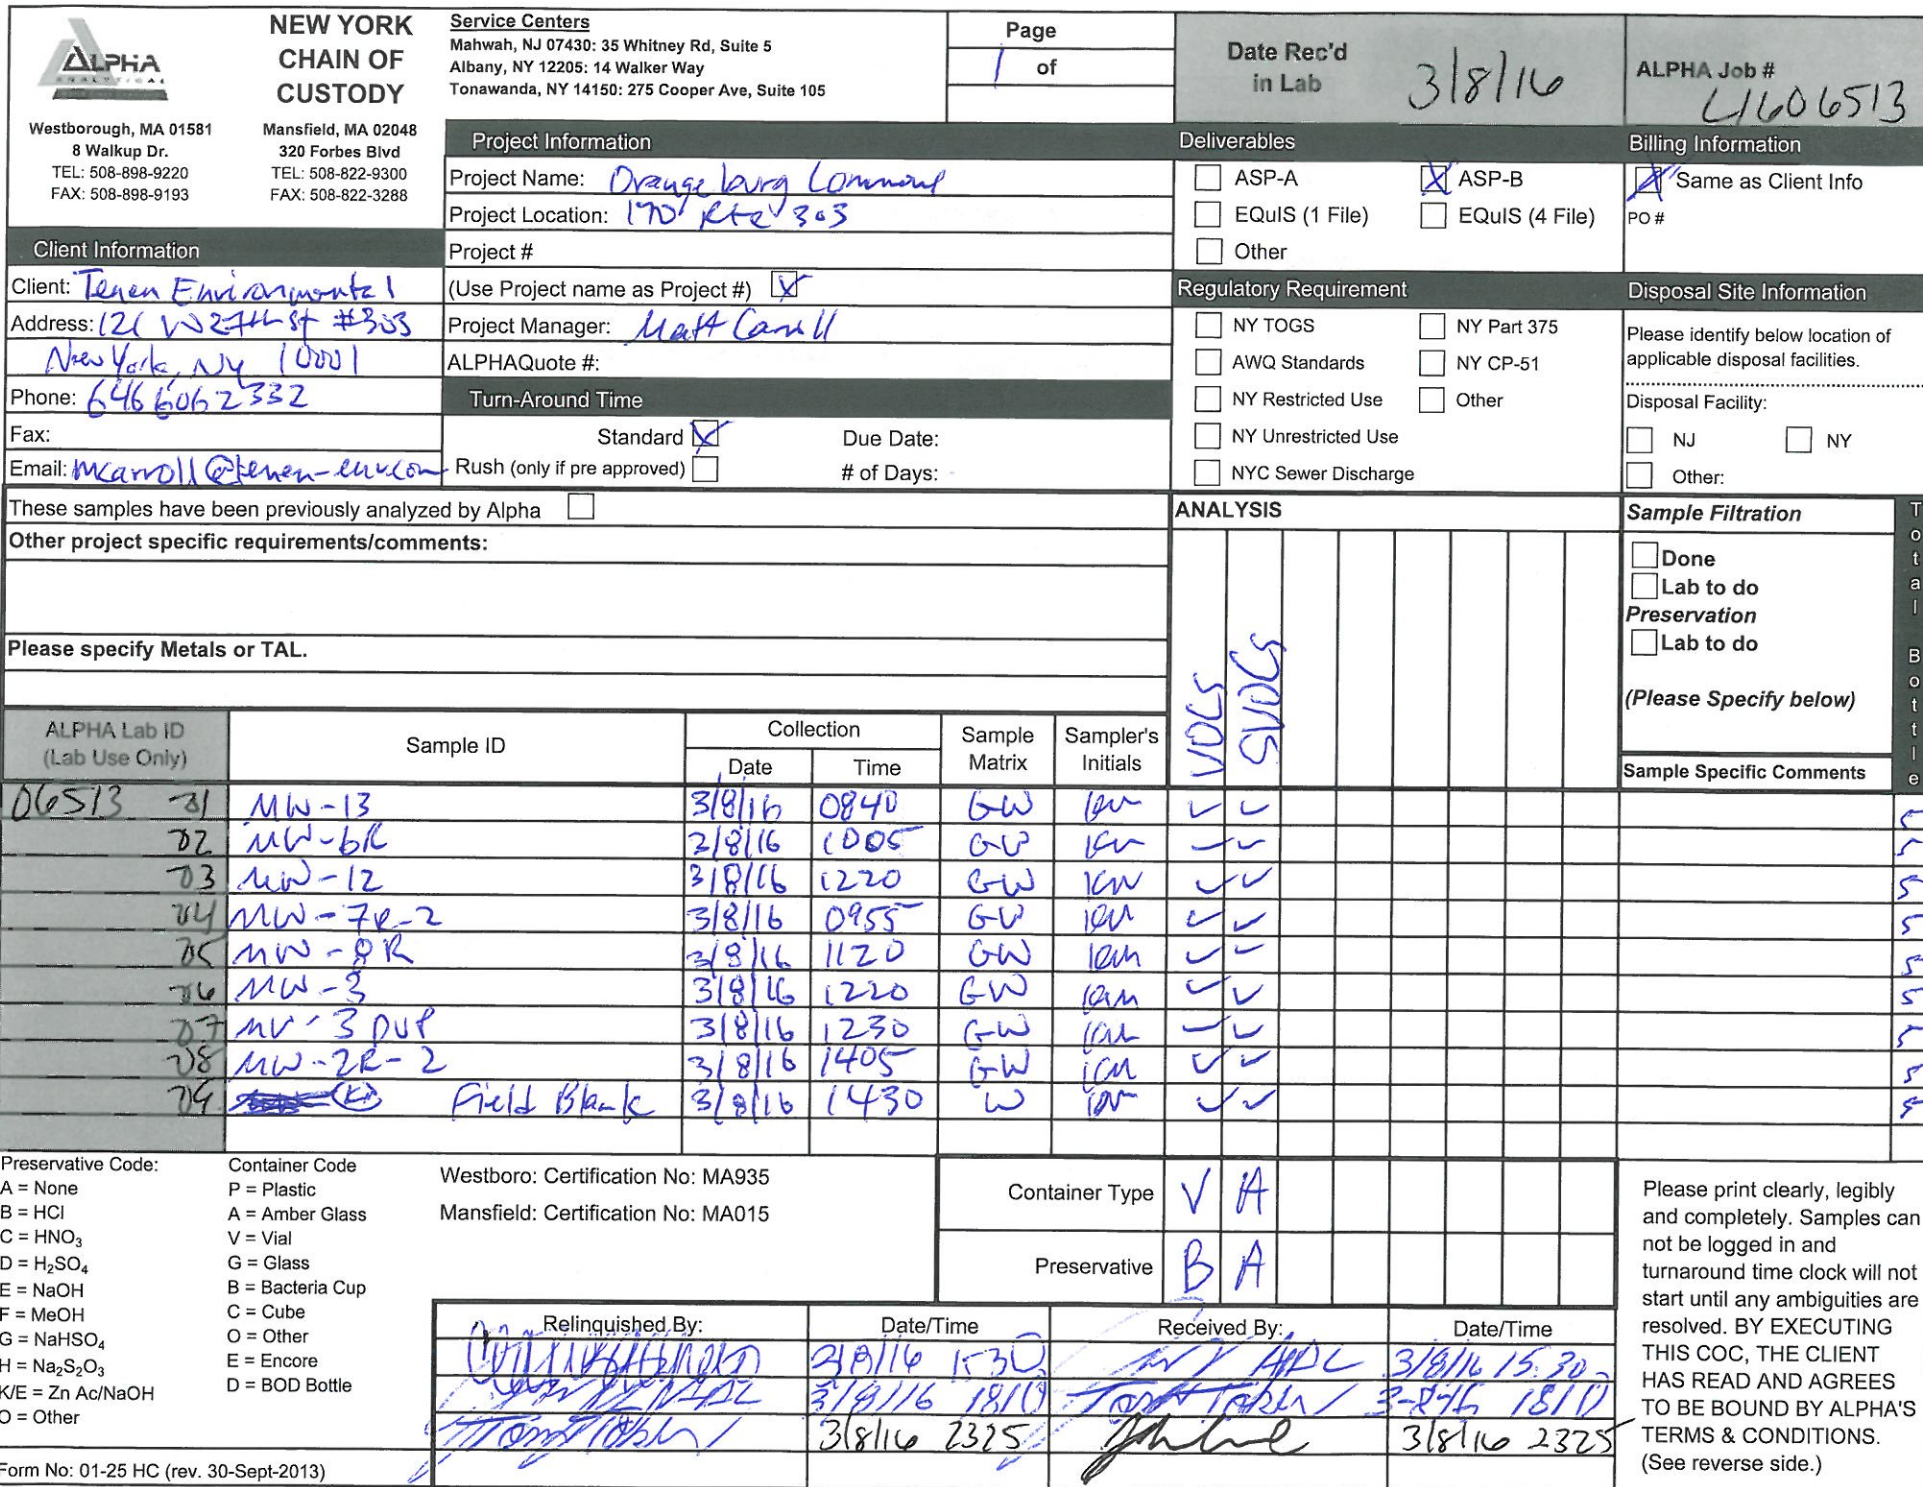 ALPHA
ANALYTICAL
NEW YORK
CHAIN OF
CUSTODY
Westborough, MA 01581
8 Walkup Dr.
TEL: 508-898-9220
FAX: 508-898-9193
Mansfield, MA 02048
320 Forbes Blvd
TEL: 508-822-9300
FAX: 508-822-3288
Service Centers
Mahwah, NJ 07430: 35 Whitney Rd, Suite 5
Albany, NY 12205: 14 Walker Way
Tonawanda, NY 14150: 275 Cooper Ave, Suite 105
Page
1 of
Date Rec'd
in Lab
3/8/16
ALPHA Job #
L1606513
Client Information
Client: Tenen Environmental
Address: 121 W 27th st #303
New York, NY 10001
Phone: 6466062332
Fax:
Email: mcarroll@tenen-env.com
Project Information
Project Name: Orangeburg Commons
Project Location: 170 Rte 303
Project #
(Use Project name as Project #) X
Project Manager: Matt Carroll
ALPHAQuote #:
Turn-Around Time
Standard X Due Date:
Rush (only if pre approved) # of Days:
Deliverables
ASP-A X ASP-B
EQuIS (1 File) EQuIS (4 File)
Other
Regulatory Requirement
NY TOGS NY Part 375
AWQ Standards NY CP-51
NY Restricted Use Other
NY Unrestricted Use
NYC Sewer Discharge
Billing Information
X Same as Client Info
PO #
Disposal Site Information
Please identify below location of
applicable disposal facilities.
Disposal Facility:
NJ NY
Other:
These samples have been previously analyzed by Alpha
Other project specific requirements/comments:
Please specify Metals or TAL.
ANALYSIS
VOCs
SVOCs
Sample Filtration
Done
Lab to do
Preservation
Lab to do
(Please Specify below)
Sample Specific Comments
Total Bottle
ALPHA Lab ID
(Lab Use Only)
Sample ID
Collection
Date Time
Sample
Matrix
Sampler's
Initials
06513 01 MW-13 3/8/16 0840 GW ✓ ✓ 5
02 MW-6R 3/8/16 1005 GW ✓ ✓ 5
03 MW-12 3/8/16 1220 GW ✓ ✓ 5
04 MW-7R-2 3/8/16 0955 GW ✓ ✓ 5
05 MW-8R 3/8/16 1120 GW ✓ ✓ 5
06 MW-3 3/8/16 1220 GW ✓ ✓ 5
07 MW-3 DUP 3/8/16 1230 GW ✓ ✓ 5
08 MW-2R-2 3/8/16 1405 GW ✓ ✓ 5
09 Field Blank 3/8/16 1430 W ✓ ✓ 5
Preservative Code:
A = None
B = HCl
C = HNO₃
D = H₂SO₄
E = NaOH
F = MeOH
G = NaHSO₄
H = Na₂S₂O₃
K/E = Zn Ac/NaOH
O = Other
Container Code
P = Plastic
A = Amber Glass
V = Vial
G = Glass
B = Bacteria Cup
C = Cube
O = Other
E = Encore
D = BOD Bottle
Westboro: Certification No: MA935
Mansfield: Certification No: MA015
Container Type V A
Preservative B A
Relinquished By: Date/Time Received By: Date/Time
3/8/16 1530 3/8/16 15:30
3/8/16 1810 3-8-16 1810
3/8/16 2325 3/8/16 2325
Please print clearly, legibly
and completely. Samples can
not be logged in and
turnaround time clock will not
start until any ambiguities are
resolved. BY EXECUTING
THIS COC, THE CLIENT
HAS READ AND AGREES
TO BE BOUND BY ALPHA'S
TERMS & CONDITIONS.
(See reverse side.)
Form No: 01-25 HC (rev. 30-Sept-2013)